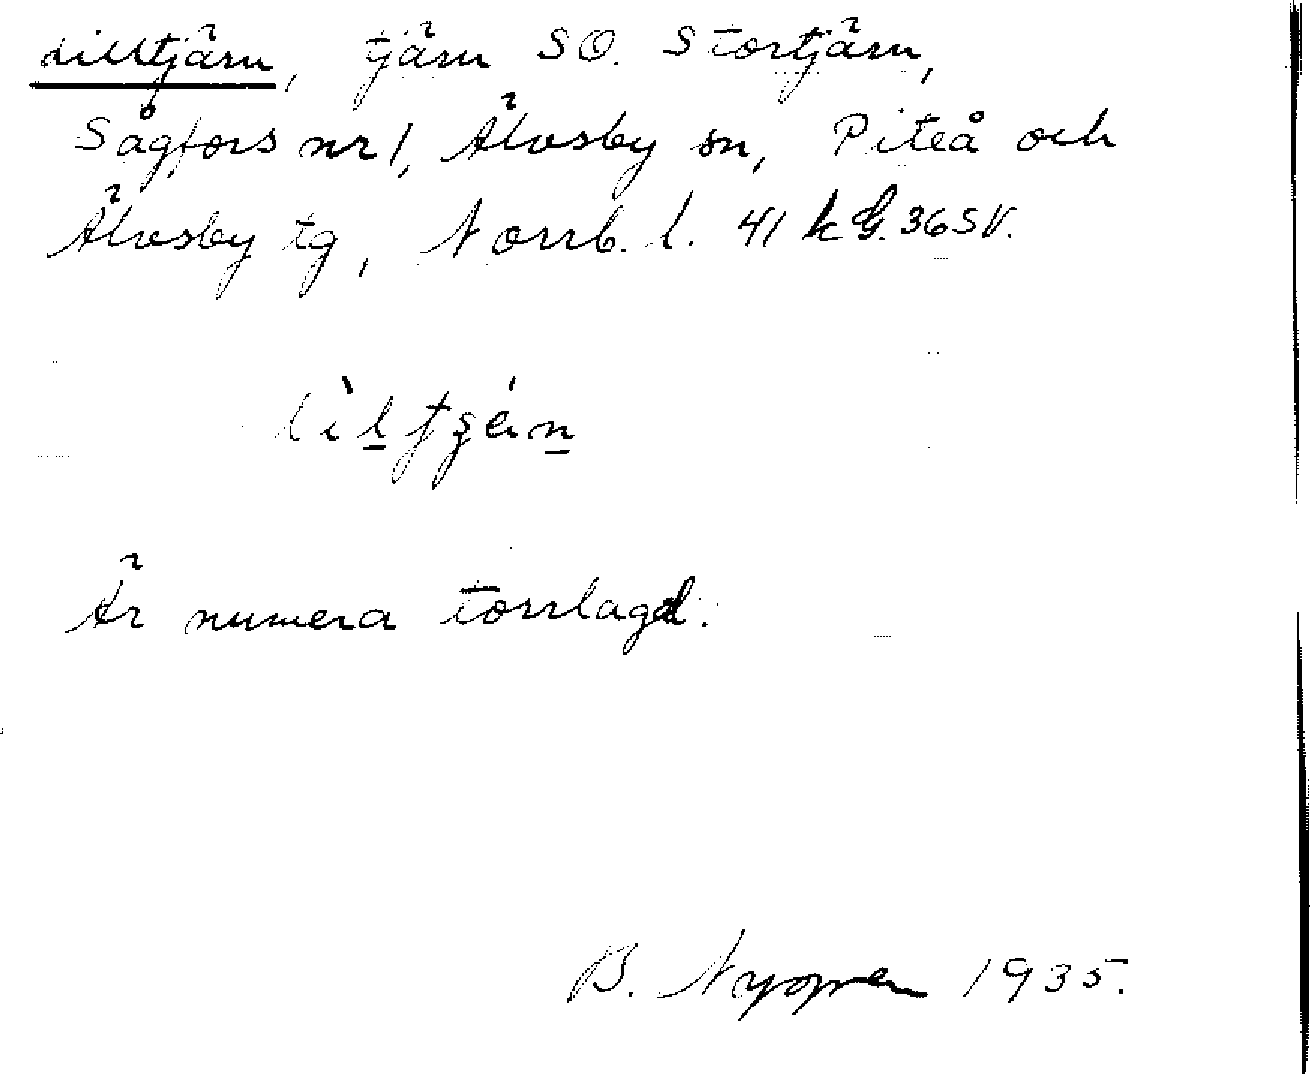 Lilltjärn, tjärn SO. Stortjärn,
Sågfors nr 1, Älvsby sn, Piteå och
Älvsby tg, Norrb. l. 41 k G. 36 SV.
Är numera torrlagd.
B. 1935.